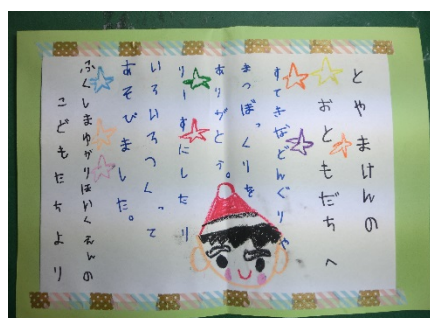 とやまけんの
おともだちへ
すてきなどんぐりや
まつぼっくりを
ありがとう。
りーすにしたり
いろいろつくって
あそびました。
ふくしまゆかりほいくえんの
こどもたちより